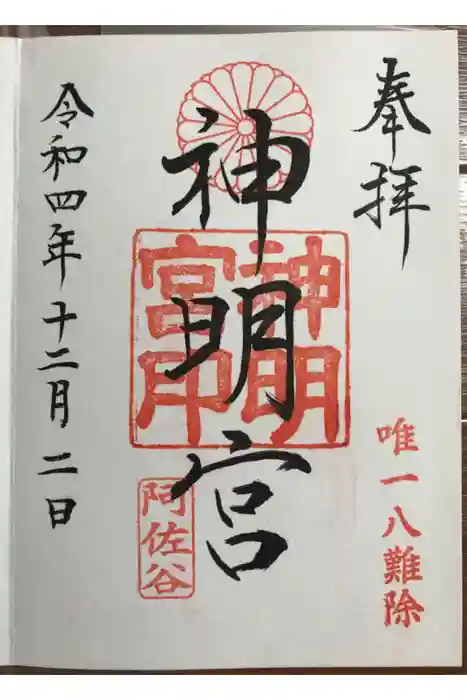 奉拝
唯一八難除
神明宮
神明
宮印
阿佐谷
令和四年十二月二日